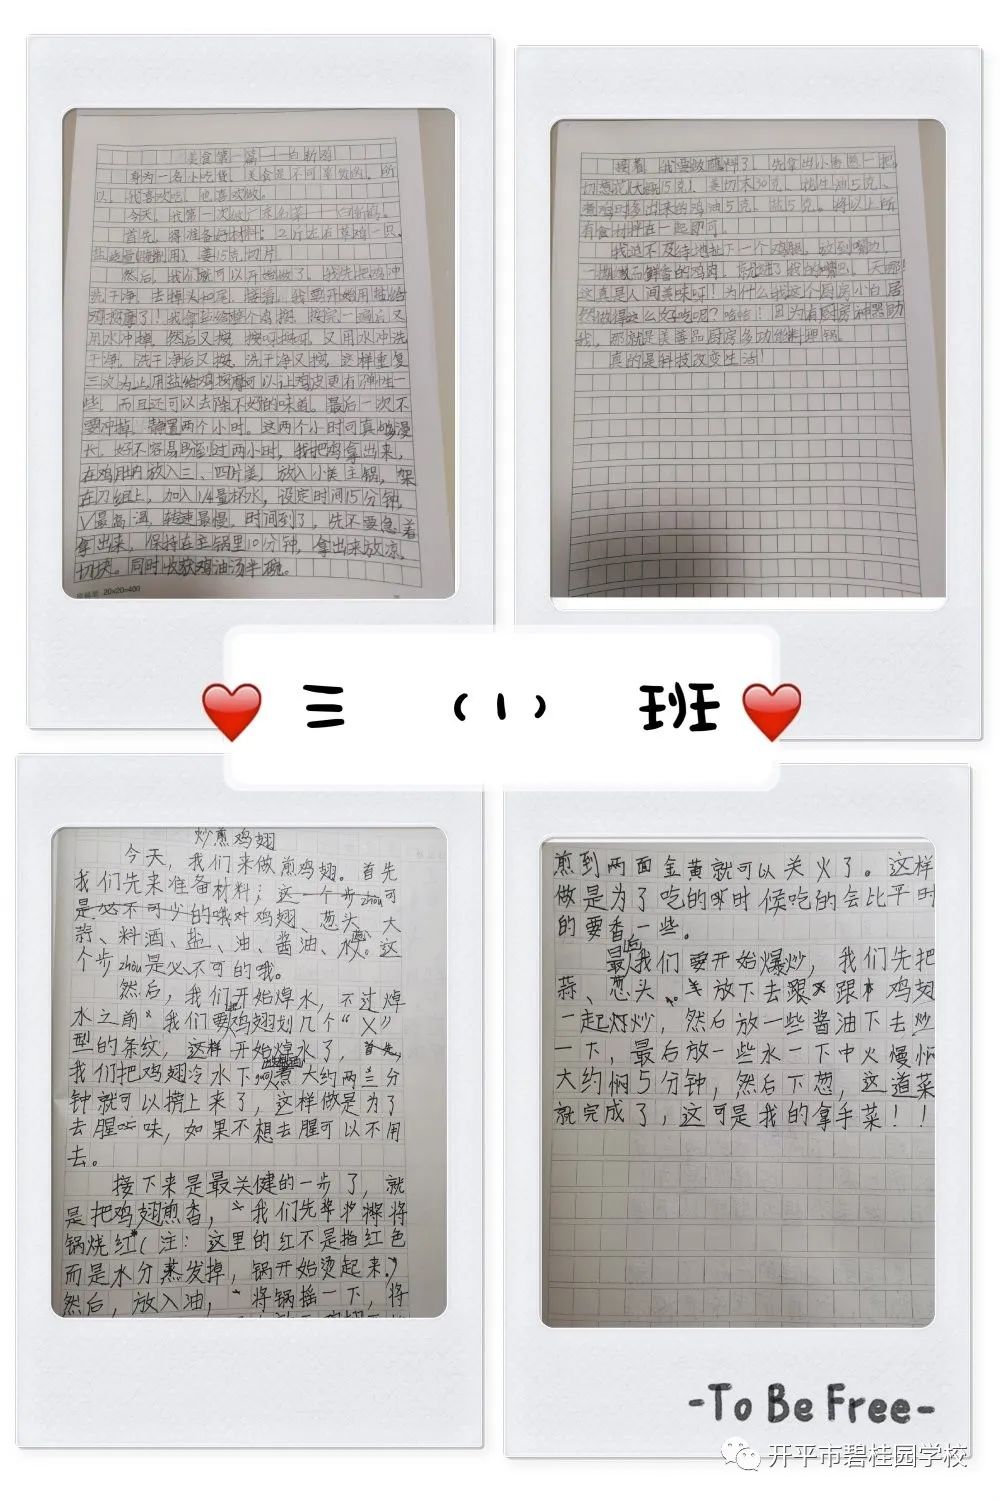 美食第一篇——白斩鸡
身为一名小吃货，美食是不可辜负的，所
以，我喜欢吃，也喜欢做。
今天，我第一次做广东名菜——白斩鸡。
首先，得准备好材料。2斤左右草鸡一只，
盐适量(腌制用)、姜15克切片。
然后，我们就可以开始做了。我先把鸡冲
洗干净，去掉头和尾，接着，我要开始用盐给
鸡按摩了！我拿盐给整个鸡按，按完一遍后又
用水冲掉，然后又按，按呀按呀，又用水冲洗
干净，洗干净后又按，洗干净又按，这样重复
三次为止，用盐给鸡按摩可以让鸡皮更有弹性一
些，而且还可以去除不好的味道。最后一次不
要冲掉，静置两个小时。这两个小时可真够漫
长，好不容易盼到过两小时，我把鸡拿出来，
在鸡肚内放入三、四片姜，放入小美主锅，架
在刀组上，加入1/4量杯水，设定时间15分钟，
V最高温，转速最慢，时间到了，先不要急着
拿出来，保持在主锅里10分钟，拿出来放凉，
切块。同时收获鸡油汤半碗。
20×20=400
接着，我要做蘸料了。先拿出小香葱一把，
切葱花(大概15克)、姜切末30克、花生油5克、
煮鸡时多出来的鸡油5克、盐5克。将以上所
有食材拌在一起即可。
我迫不及待地扯下一个鸡腿，放到嘴边，
这真是人间美味呀！为什么我这个厨房小白居
然做得这么好吃呢？哈哈！因为有厨房神器助
我，那就是美善品厨房多功能料理锅。
真的是科技改变生活！
三 （1） 班
炒煎鸡翅
今天，我们来做煎鸡翅。首先
我们先来准备材料；这一个步zhou可
是必不可少的哦对鸡翅、葱头、大
蒜、料酒、盐、油、酱油、水。这
个步zhou是必不可的哦。
然后，我们开始焯水，不过焯
水之前我们要把鸡翅划几个“X”
型的条纹，这样开始焯水了，首先，
我们把鸡翅冷水下锅煮大约两三分
钟就可以捞上来了，这样做是为了
去腥味，如果不想去腥可以不用
去。
接下来是最关健的一步了，就
是把鸡翅煎香，我们先将
锅烧红(注：这里的红不是指红色
而是水分蒸发掉，锅开始烫起来)
然后，放入油，将锅摇一下，将
煎到两面金黄就可以关火了。这样
做是为了吃的时候吃的会比平时
的要香一些。
最后我们要开始爆炒，我们先把
蒜、葱头放下去跟鸡翅
一起炒，然后放一些酱油下去炒
一下，最后放一些水一下中火慢焖
大约焖5分钟，然后下葱，这道菜
就完成了，这可是我的拿手菜！！
-To Be Free-
开平市碧桂园学校